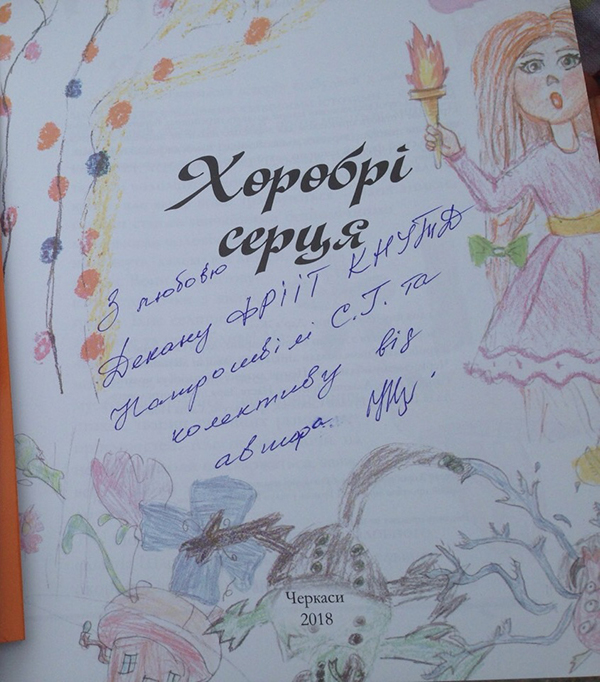 Хоробрі
серця
З любов'ю
Декану ФРІІТ КНУТД
Натрошвілі С.Г. та
колективу від
автора.
Черкаси
2018